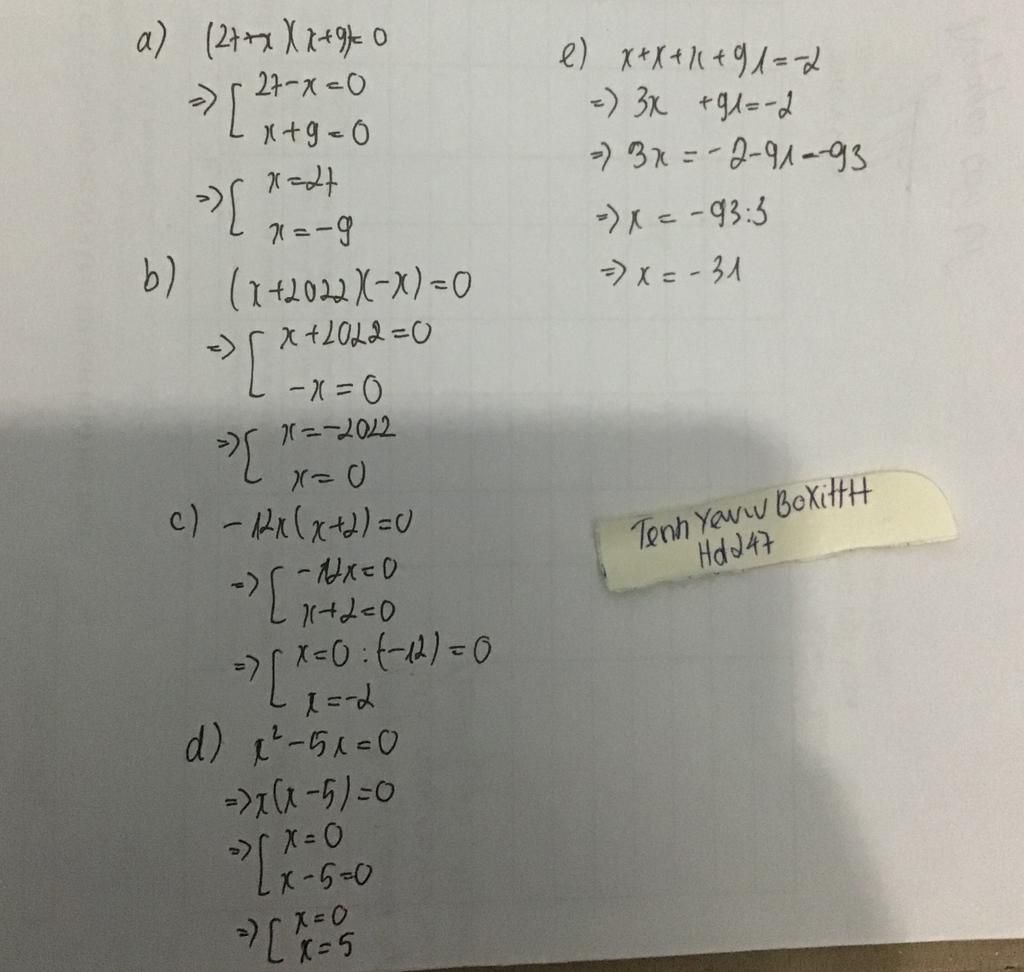 a) (27-x)(x+9)=0
=> [ 27-x=0
x+9=0
=> [ x=27
x=-9
b) (x+2022)(-x)=0
=> [ x+2022=0
-x=0
=> [ x=-2022
x=0
c) -12x(x+2)=0
=> [ -12x=0
x+2=0
=> [ x=0:(-12)=0
x=-2
d) x²-5x=0
=> x(x-5)=0
=> [ x=0
x-5=0
=> [ x=0
x=5
e) x+x+x+91=-2
=> 3x +91=-2
=> 3x=-2-91=-93
=> x=-93:3
=> x=-31
Hdd247